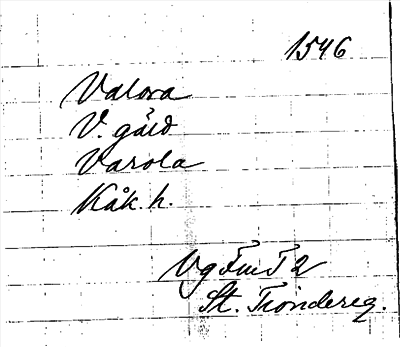 1546
Valora
V. gård
Varola
Kåk. h.
Vg Fm T 2
St. Tiondereg.